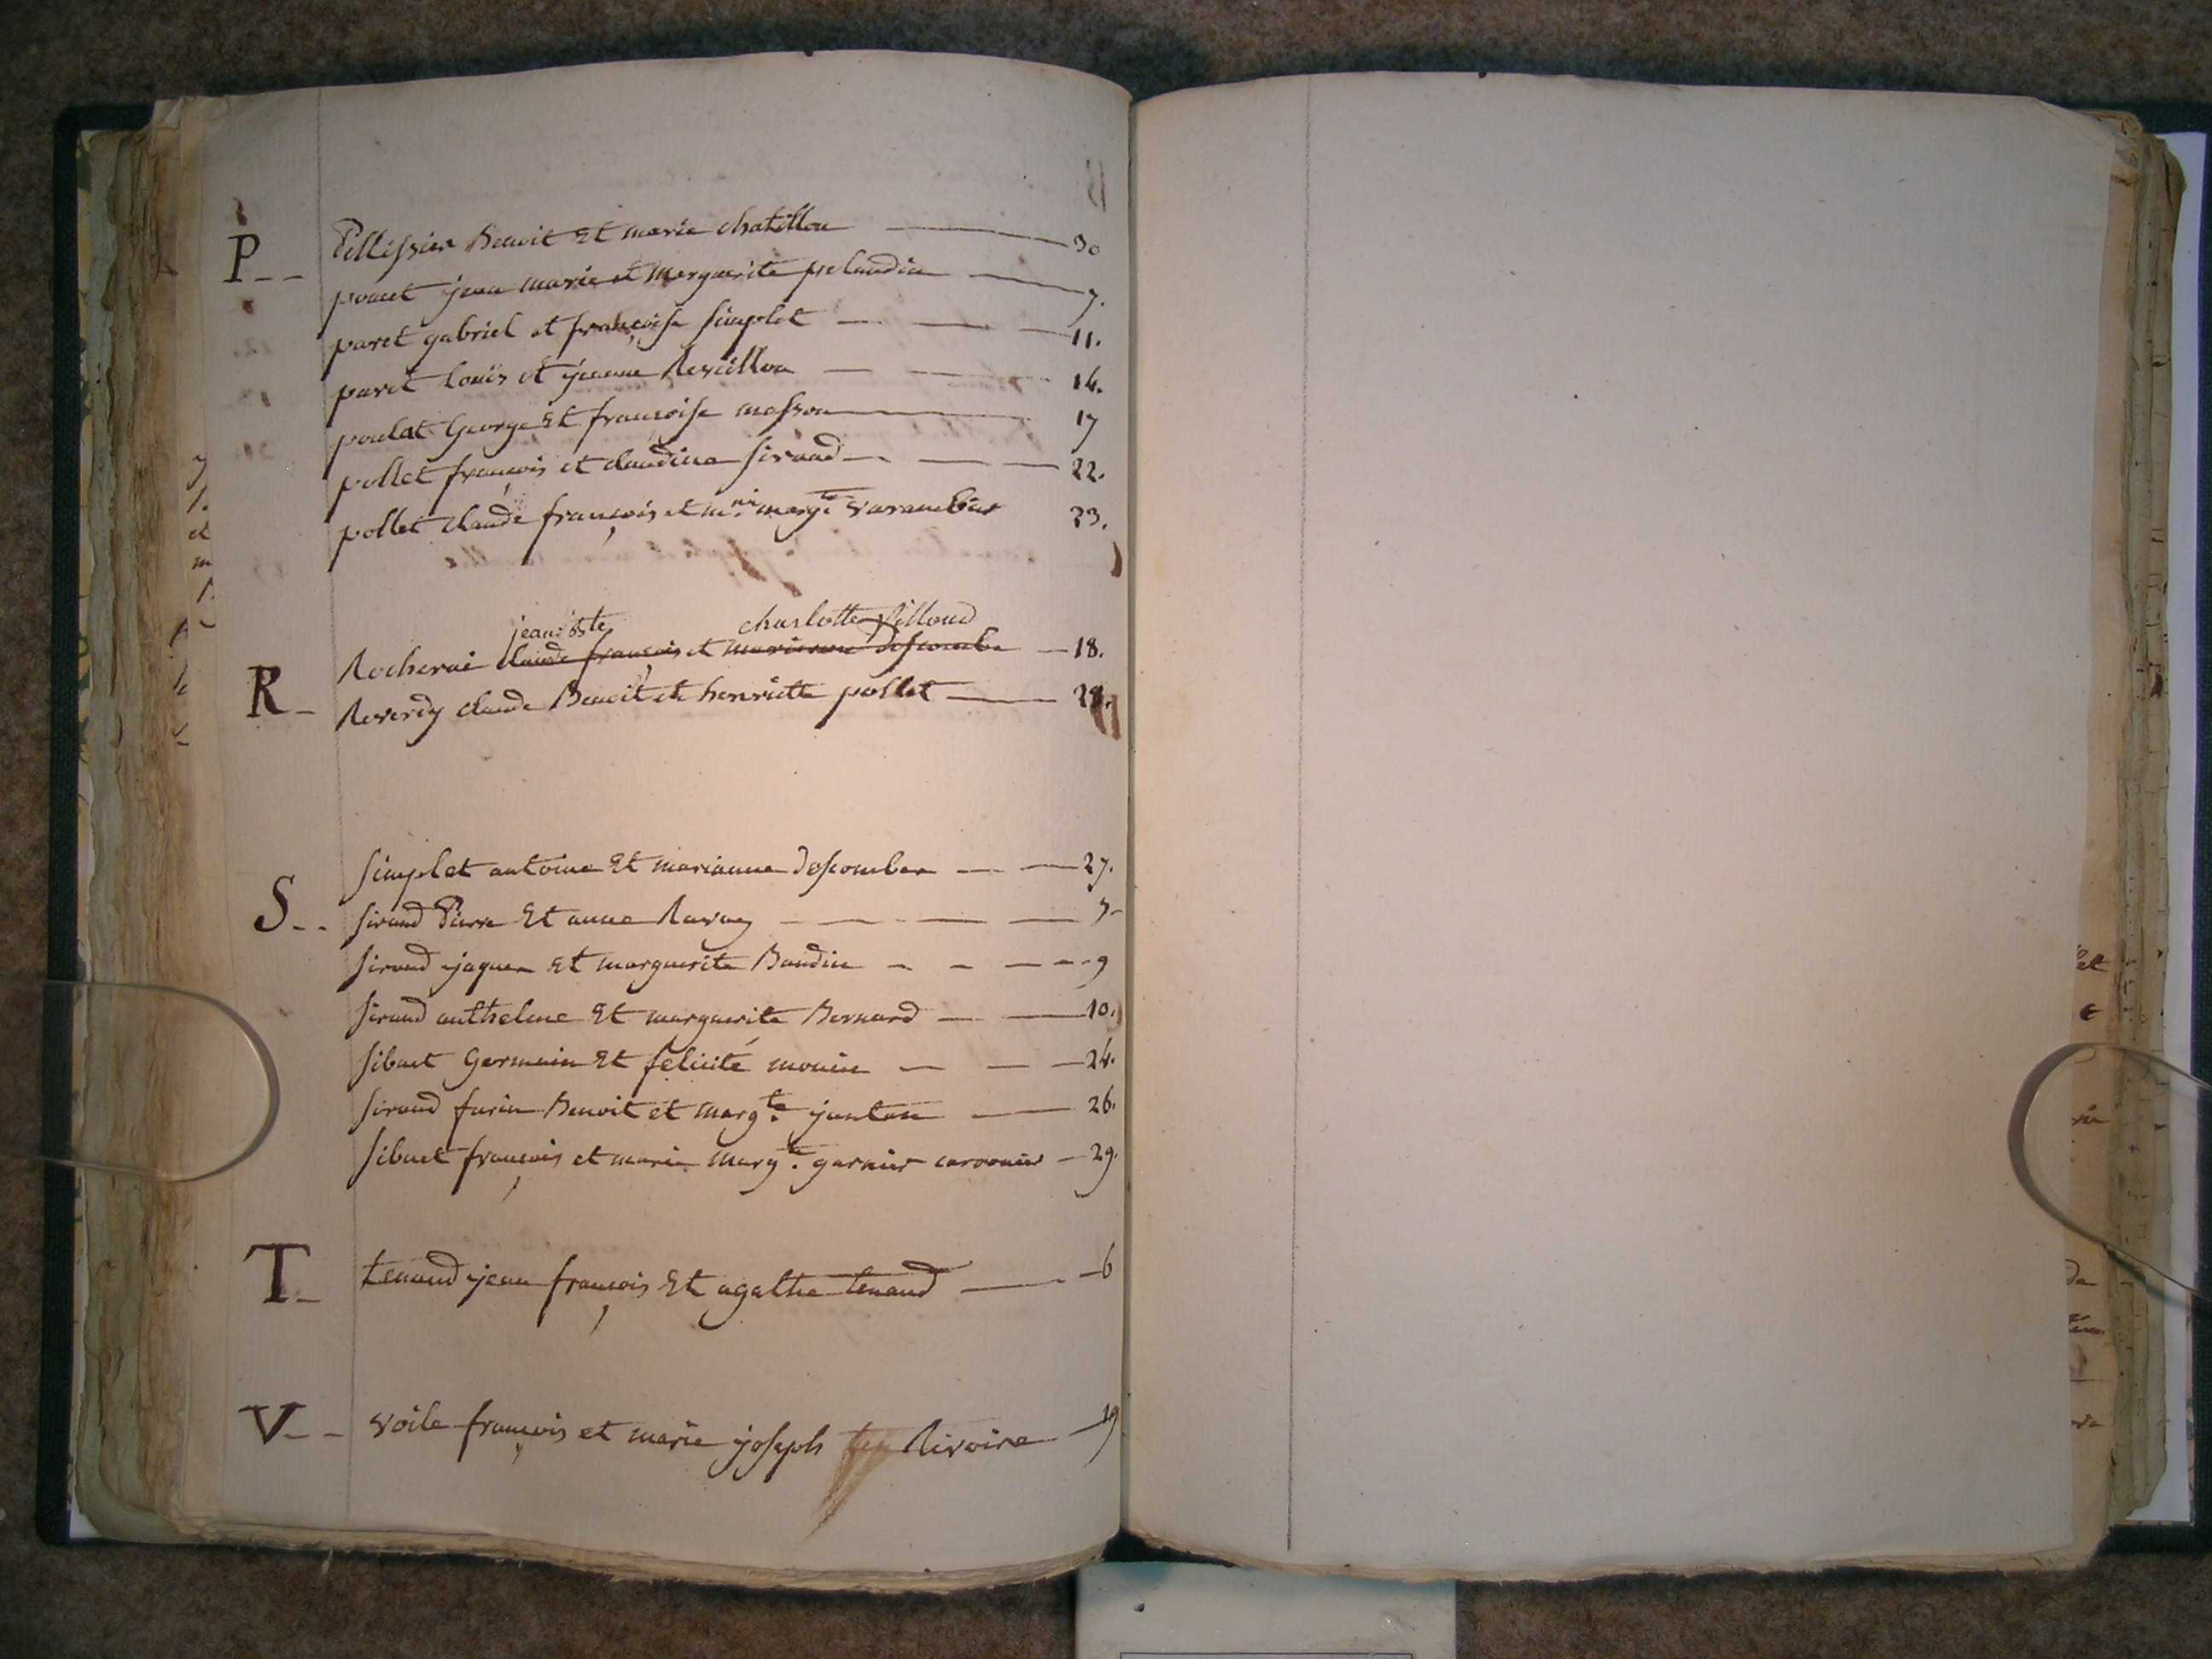 P-- Pellissier Benoit Et marie chatillon — 30
poncet jean marie et Marguerite pelaudin — 7.
paret gabriel et françoise simplet — 11.
paret Louis et jeanne Reveillon — 14.
poulat George Et françoise masson — 17
pollet françois et claudine siraud — 22.
pollet claude françois et m.rie marg.te varambier 23.
jean bste charlotte Rilloud
R- Rocherai claude françois et marianne descombe — 18.
Reverdy claude Benoit et henriette pollet — 28.
S-- simplet antoine Et marianne descomber — 27.
siraud Pierre Et anne Ravay — 5-
siraud jaques Et marguerite Baudin — 9
siraud anthelme Et marguerite Bernard — 10.
sibuet Germain Et felicité monin — 24.
siraud furin Benoit et marg.te juntau — 26.
sibuet françois et marie marg.te garnier carronier — 29.
T- tenand jean françois Et agathe tenand — 6
V-- voile françois et marie joseph Rivoire — 19